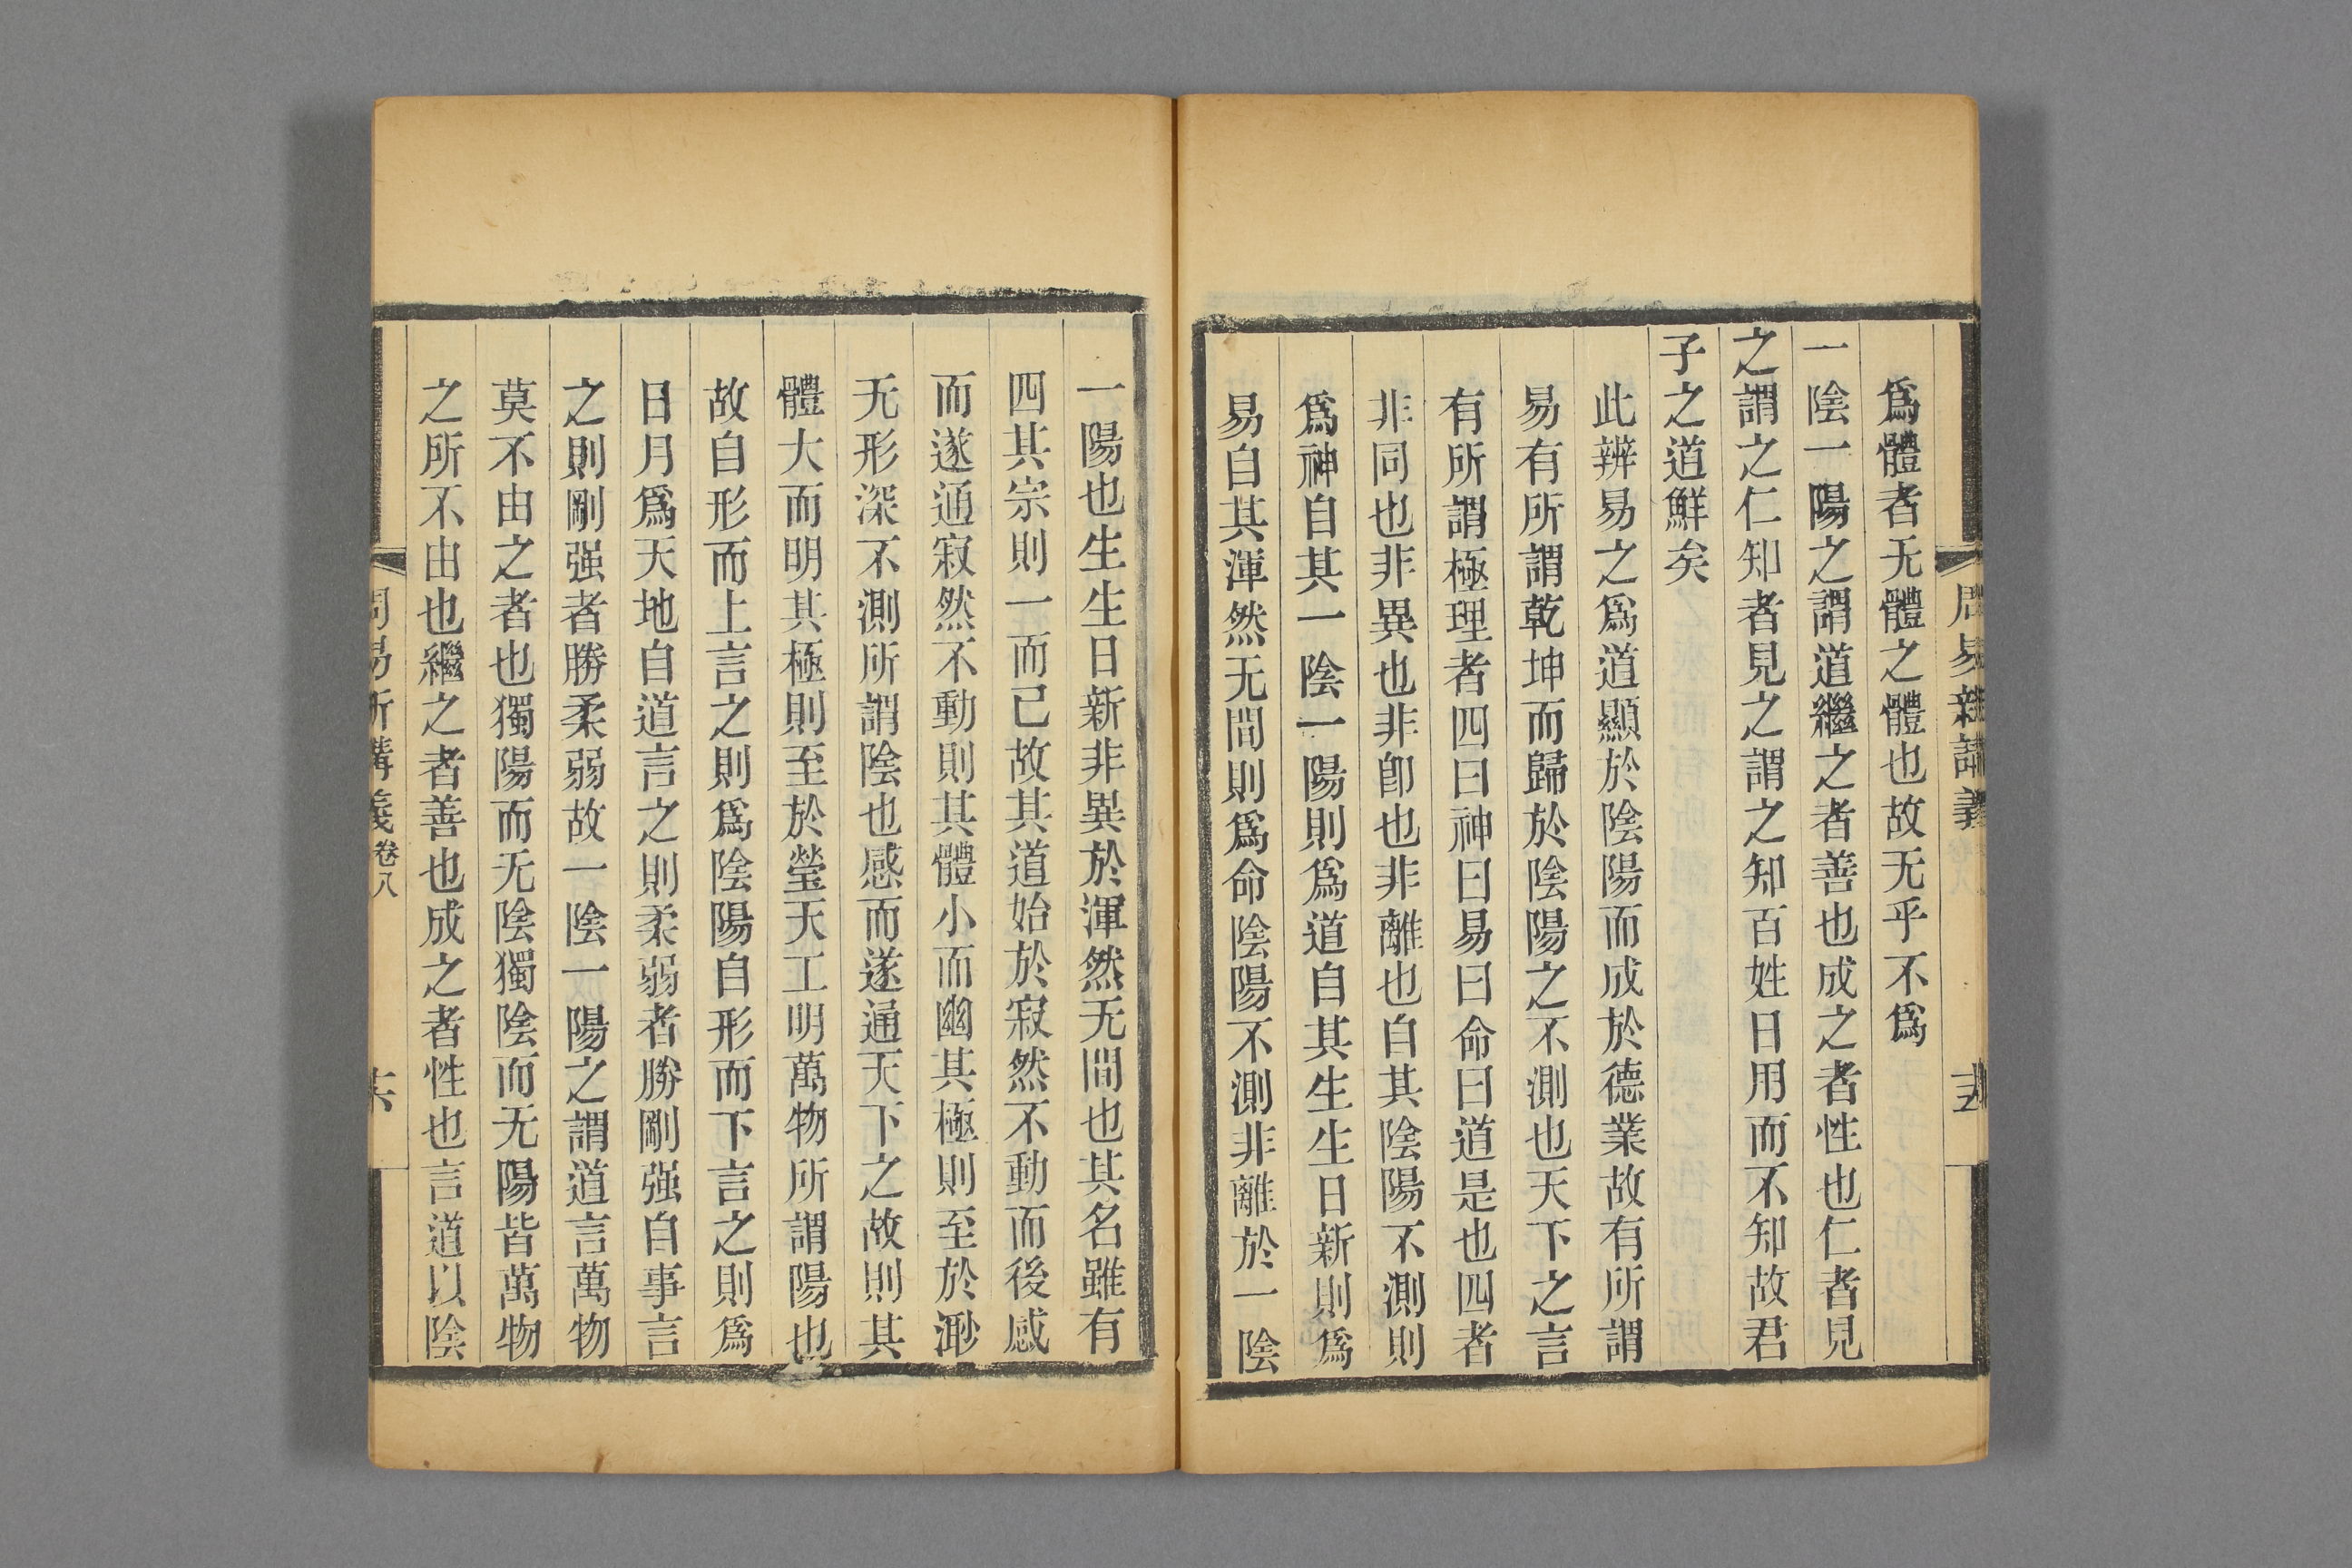 周易新講義
十五
爲體者无體之體也故无乎不爲
一陰一陽之謂道繼之者善也成之者性也仁者見
之謂之仁知者見之謂之知百姓日用而不知故君
子之道鮮矣
此辨易之爲道顯於陰陽而成於德業故有所謂
易有所謂乾坤而歸於陰陽之不測也天下之言
有所謂極理者四曰神曰易曰命曰道是也四者
非同也非異也非卽也非離也自其陰陽不測則
爲神自其一陰一陽則爲道自其生生日新則爲
易自其渾然无間則爲命陰陽不測非離於一陰
一陽也生生日新非異於渾然无間也其名雖有
四其宗則一而已故其道始於寂然不動而後感
而遂通寂然不動則其體小而幽其極則至於渺
无形深不測所謂陰也感而遂通天下之故則其
體大而明其極則至於瑩天工明萬物所謂陽也
故自形而上言之則爲陰陽自形而下言之則爲
日月爲天地自道言之則柔弱者勝剛强自事言
之則剛强者勝柔弱故一陰一陽之謂道言萬物
莫不由之者也獨陽而无陰獨陰而无陽皆萬物
之所不由也繼之者善也成之者性也言道以陰
周易新講義 卷八
十六